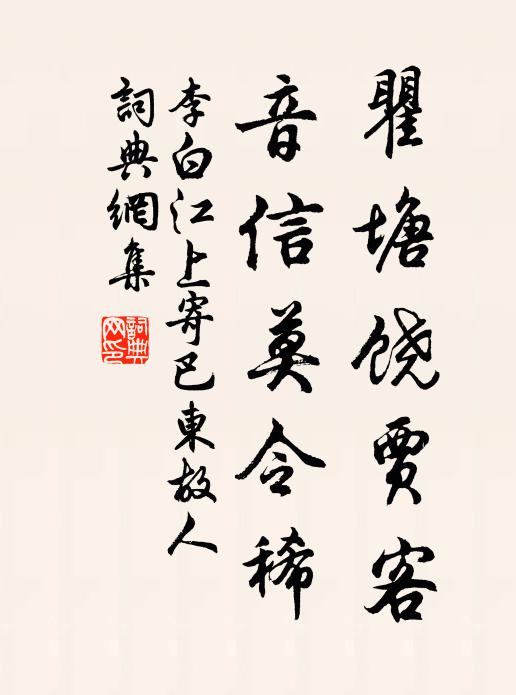 瞿塘饶贾客
音信莫令稀
李白江上寄巴東故人
詞典網集
詞典网印